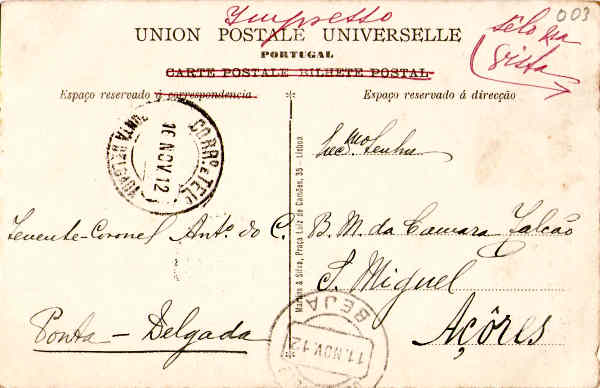 Impresso
003
sêlo na
vista
UNION POSTALE UNIVERSELLE
PORTUGAL
CARTE POSTALE BILHETE POSTAL
Espaço reservado á correspondencia
Espaço reservado á direcção
PONTA DELGADA
16 NOV. 12
CORRº. E TELº.
Martins & Silva, Praça Luiz de Camões, 35 - Lisboa
Senhor
Tenente-Coronel Antº. do C. B. M. da Camara Falcão
S. Miguel
Ponta - Delgada
Açôres
BEJA
11. NOV. 12